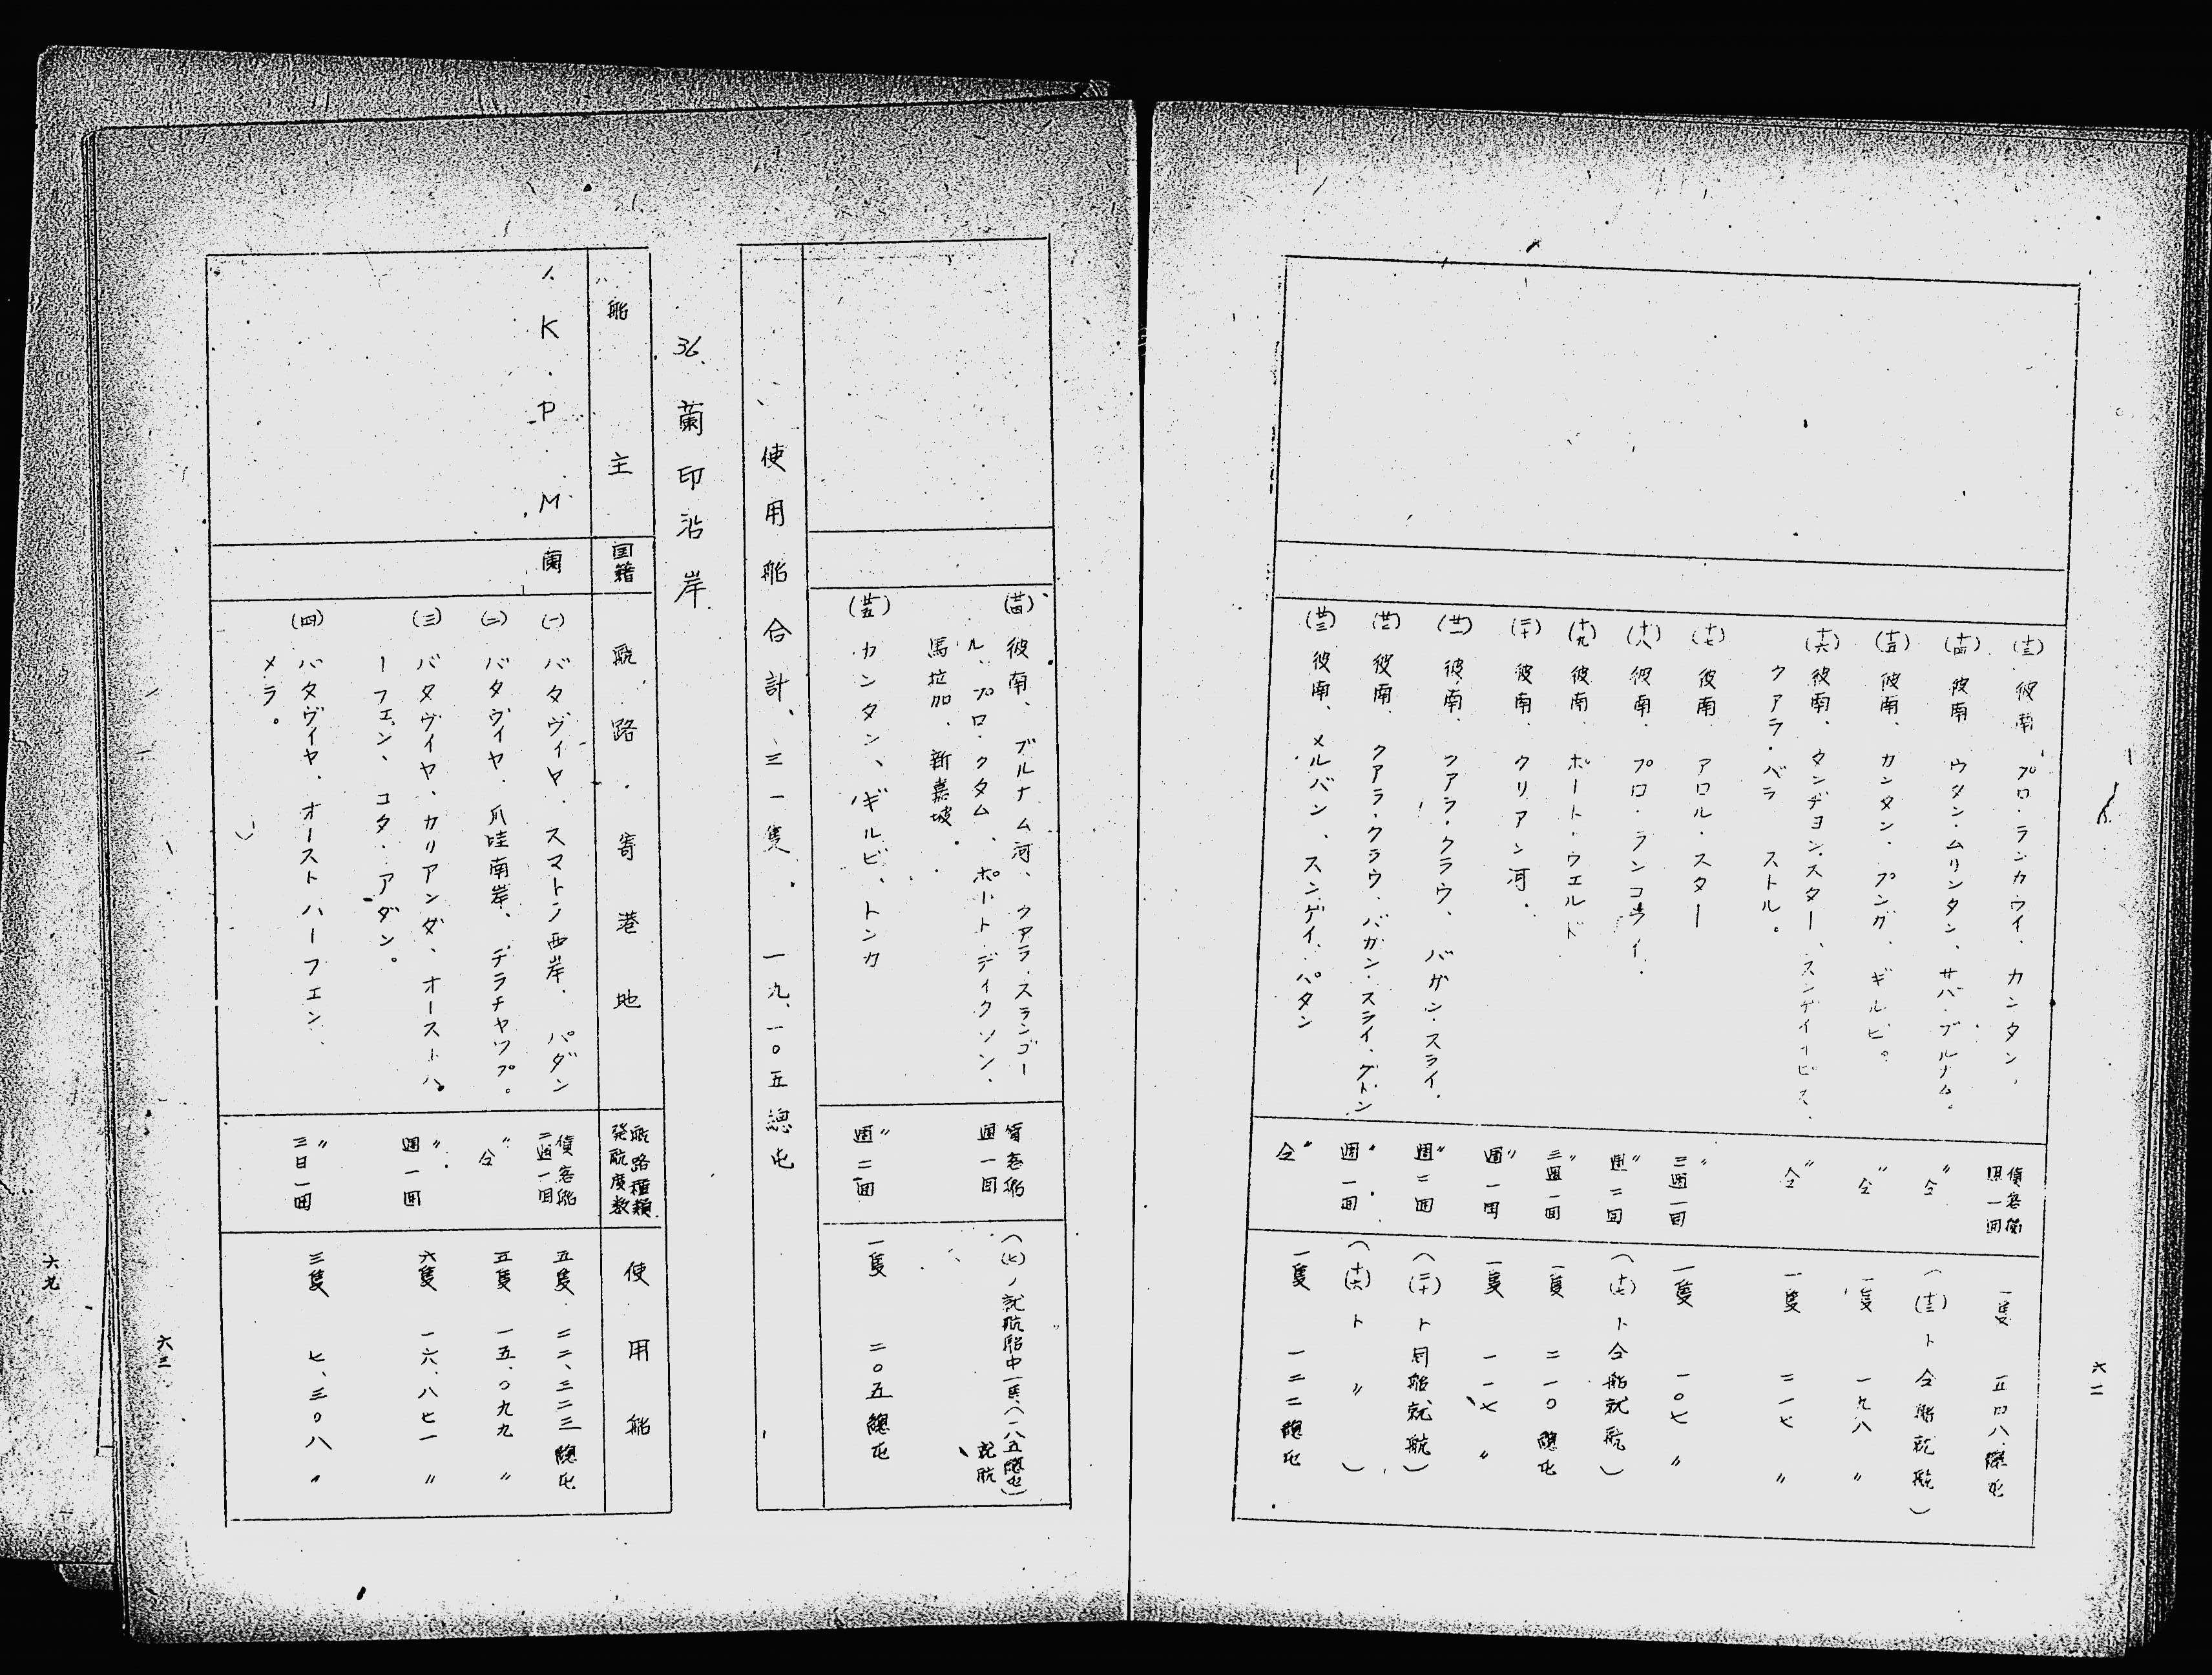 六二
(十三) 彼南、プロ・ランカウイ、カンタン、
貨客船
週一回
一隻 五四八總屯
(十四) 彼南 ウタン・ムリンタン、サバ・ブルナム。
〃
仝
((十三)ト仝船就航)
(十五) 彼南、カンタン、プング、ギルビ。
〃
仝
一隻 一九八 〃
(十六) 彼南、タンヂヨン・スター、スンゲイ
クアラ・バラ ストル。
〃
仝
一隻 二一七 〃
(十七) 彼南 アロル・スター
〃
三週一回
一隻 一〇七 〃
(十八) 彼南、プロ・ランコウイ、
〃
週二回
((十七)ト仝船就航)
(十九) 彼南、ポート・ウエルド
〃
三週一回
一隻 二一〇總屯
(二十) 彼南、クリアン河、
〃
週一回
一隻 一一七 〃
(廿一) 彼南、クアラ・クラウ、バガン・スライ、
〃
週二回
((二十)ト同船就航)
(廿二) 彼南、クアラ・クラウ、バガン・スライ、グトン
〃
週一回
((十六)ト 〃 )
(廿三) 彼南、メルバン、スンゲイ、パタン
〃
仝
一隻 一二二總屯
(廿四) 彼南、ブルナム河、クアラ・スランゴー
ル、プロ・クタム、ポート・ディクソン、
馬拉加、新嘉坡、
貨客船
週一回
((七)ノ就航船中一隻(一八五總屯)
就航
(廿五) カンタン、ギルビ、トンカ
〃
週二回
一隻 二〇五總屯
使用船合計、三一隻、一九、一〇五總屯
36、蘭印沿岸
船主
国籍
航路・寄港地
航路種類
発航度数
使用船
1、K.P.M
蘭
(一) バタヴイヤ、スマトラ西岸、パダン
貨客船
二週一回
五隻 二二、三二三總屯
(二) バタヴイヤ、爪哇南岸、チラチヤツプ。
〃
仝
五隻 一五、〇九九 〃
(三) バタヴイヤ、カリアンダ、オーストハ
ーフエン、コタ・アダン。
〃
週一回
六隻 一六、八七一 〃
(四) バタヴイヤ、オーストハーフエン、
メラ。
〃
三日一回
三隻 七、三〇八 〃
六三
六九